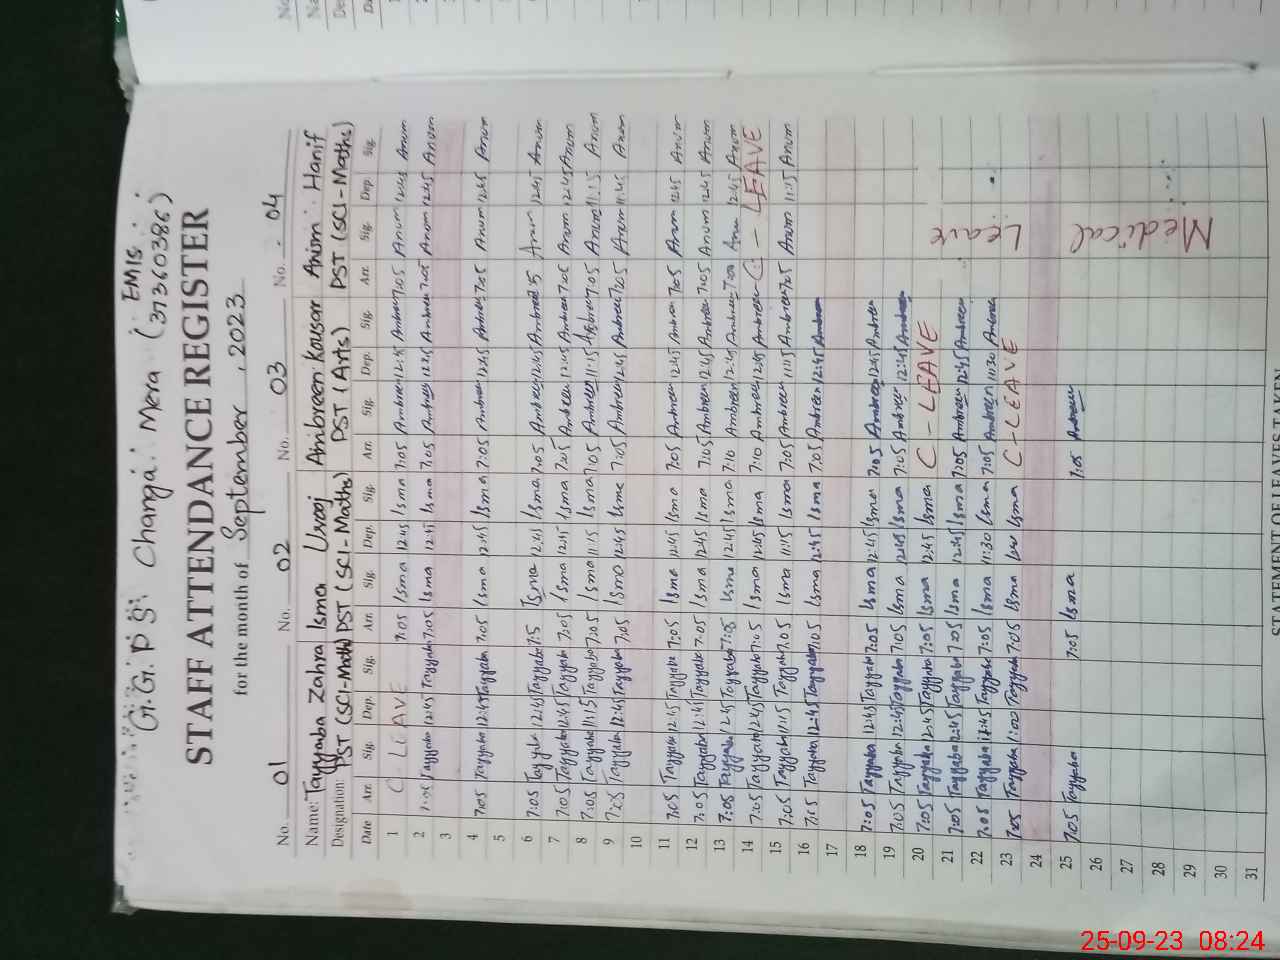 G.G.P.S. Changa Mera ( EMIS: 37360386 )
STAFF ATTENDANCE REGISTER
for the month of September, 2023
No. 01 No. 02 No. 03 No. 04
Name: Tayyaba Zahra Isma Urooj Ambreen Kousar Anum Hanif
Designation: PST (SCI-Math) PST (SCI-Maths) PST (Arts) PST (SCI-Maths)
Date Arr. Sig. Dep. Sig. Arr. Sig. Dep. Sig. Arr. Sig. Dep. Sig. Arr. Sig. Dep. Sig.
1 C LEAVE 7:05 Isma 12:45 Isma 7:05 Ambreen 12:45 Ambreen 7:05 Anum 12:45 Anum
2 7:05 Tayyaba 12:45 Tayyaba 7:05 Isma 12:45 Isma 7:05 Ambreen 12:45 Ambreen 7:05 Anum 12:45 Anum
3
4 7:05 Tayyaba 12:45 Tayyaba 7:05 Isma 12:45 Isma 7:05 Ambreen 12:45 Ambreen 7:05 Anum 12:45 Anum
5
6 7:05 Tayyaba 12:45 Tayyaba 7:5 Isma 12:45 Isma 7:05 Ambreen 12:45 Ambreen Anum 12:45 Anum
7 7:05 Tayyaba 12:45 Tayyaba 7:05 Isma 12:45 Isma 7:05 Ambreen 12:45 Ambreen 7:05 Anum 12:45 Anum
8 7:05 Tayyaba 11:15 Tayyaba 7:05 Isma 11:15 Isma 7:05 Ambreen 11:15 Ambreen 7:05 Anum 11:15 Anum
9 7:05 Tayyaba 12:45 Tayyaba 7:05 Isma 12:45 Isma 7:05 Ambreen 12:45 Ambreen 7:05 Anum 12:45 Anum
10
11 7:05 Tayyaba 12:45 Tayyaba 7:05 Isma 12:45 Isma 7:05 Ambreen 12:45 Ambreen 7:05 Anum 12:45 Anum
12 7:05 Tayyaba 12:45 Tayyaba 7:05 Isma 12:45 Isma 7:05 Ambreen 12:45 Ambreen 7:05 Anum 12:45 Anum
13 7:05 Tayyaba 12:45 Tayyaba 7:05 Isma 12:45 Isma 7:10 Ambreen 12:45 Ambreen Anum 12:45 Anum
14 7:05 Tayyaba 12:45 Tayyaba 7:05 Isma 12:45 Isma 7:10 Ambreen 12:45 Ambreen C - LEAVE
15 7:05 Tayyaba 11:15 Tayyaba 7:05 Isma 11:15 Isma 7:05 Ambreen 11:15 Ambreen 7:05 Anum 11:15 Anum
16 7:05 Tayyaba 12:45 Tayyaba 7:05 Isma 12:45 Isma 7:05 Ambreen 12:45 Ambreen
17
18 7:05 Tayyaba 12:45 Tayyaba 7:05 Isma 12:45 Isma 7:05 Ambreen 12:45 Ambreen
19 7:05 Tayyaba 12:45 Tayyaba 7:05 Isma 12:45 Isma 7:05 Ambreen 12:45 Ambreen
20 7:05 Tayyaba 12:45 Tayyaba 7:05 Isma 12:45 Isma C - LEAVE
21 7:05 Tayyaba 12:45 Tayyaba 7:05 Isma 12:45 Isma 7:05 Ambreen 12:45 Ambreen
22 7:05 Tayyaba 12:45 Tayyaba 7:05 Isma 11:30 Isma 7:05 Ambreen 11:30 Ambreen
23 7:05 Tayyaba 1:00 Tayyaba 7:05 Isma Isma C-LEAVE
24
25 7:05 Tayyaba 7:05 Isma 7:05 Ambreen
26
27
28
29
30
31
Medical Leave
STATEMENT OF LEAVES TAKEN
25-09-23 08:24